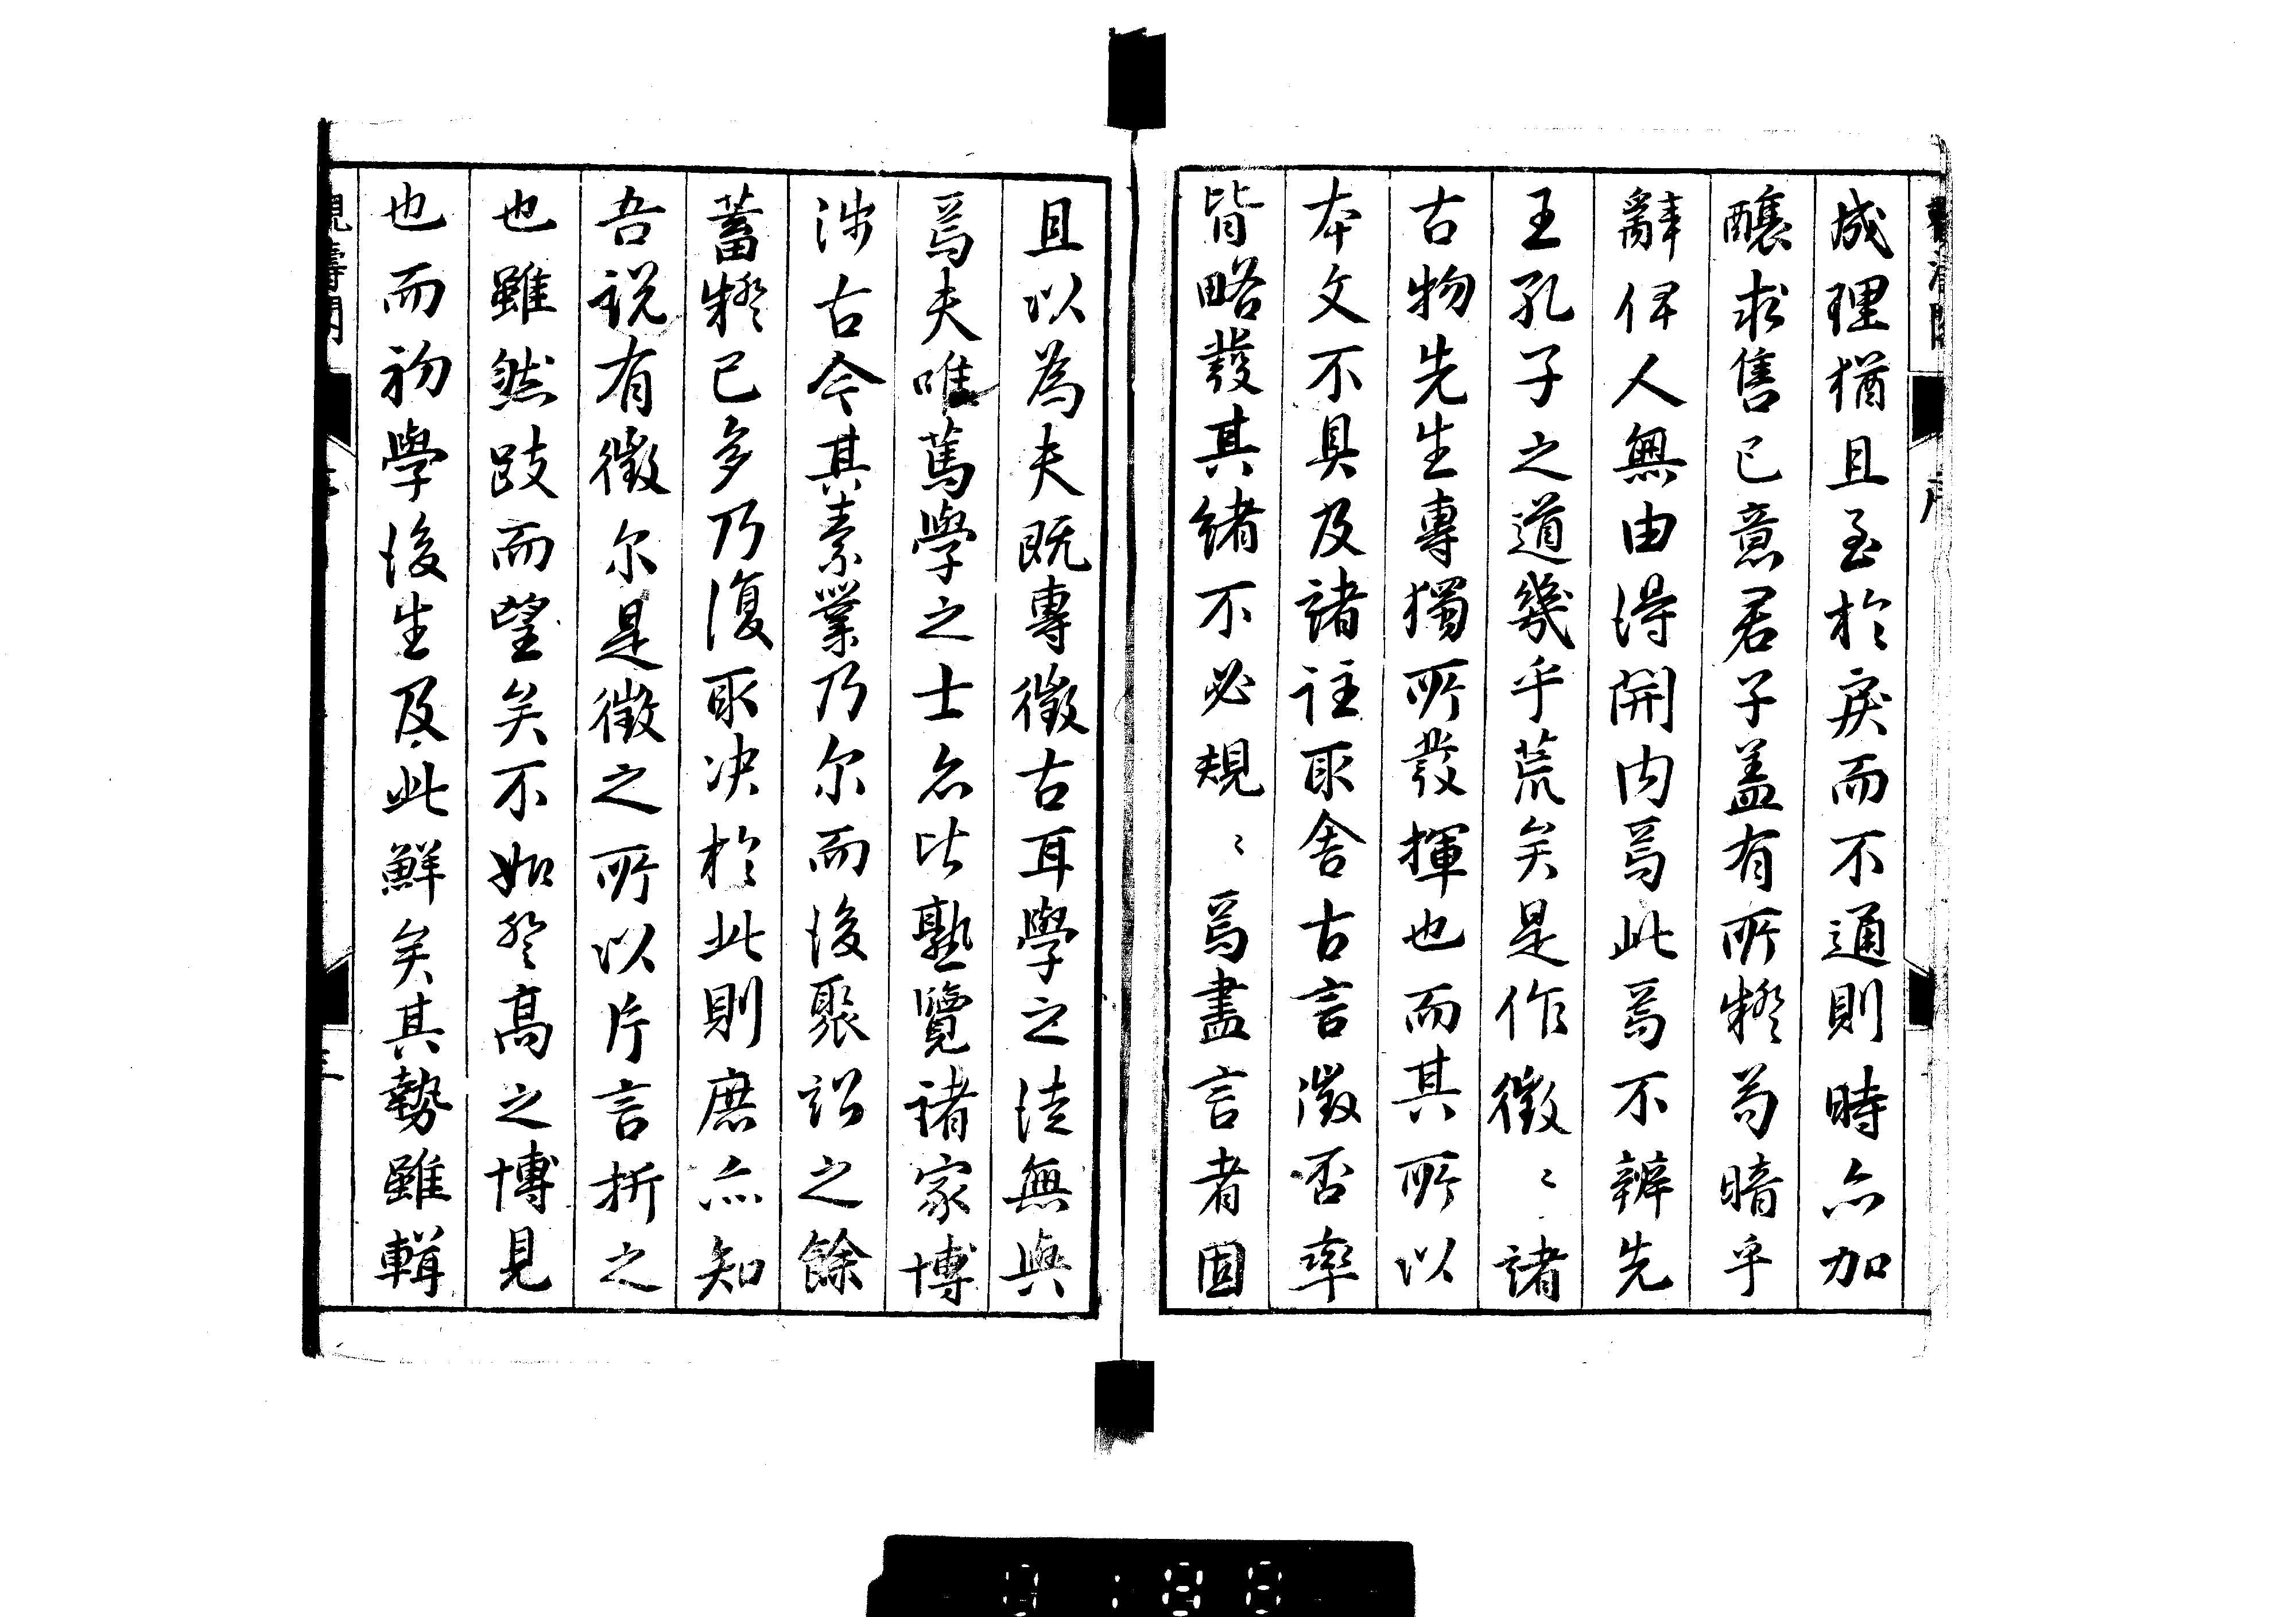 成理猶且至於戾而不通則時亦加
釀求售已意君子蓋有所疑苟暗乎
辭俾人無由得開内焉此焉不辨先
王孔子之道幾乎荒矣是作徵〻諸
古物先生專獨所發揮也而其所以
本文不具及諸註取舍古言徵否率
皆略發其緒不必規〻焉盡言者固
且以為夫既專徵古耳學之徒無與
焉夫唯篤學之士必比熟覽諸家博
涉古今其素業乃尔而後聚訟之餘
蓄疑已多乃復取決於此則庶亦知
吾説有徵尓是徵之所以片言折之
也雖然跂而望矣不如登高之博見
也而初學後生及此鮮矣其勢雖輯